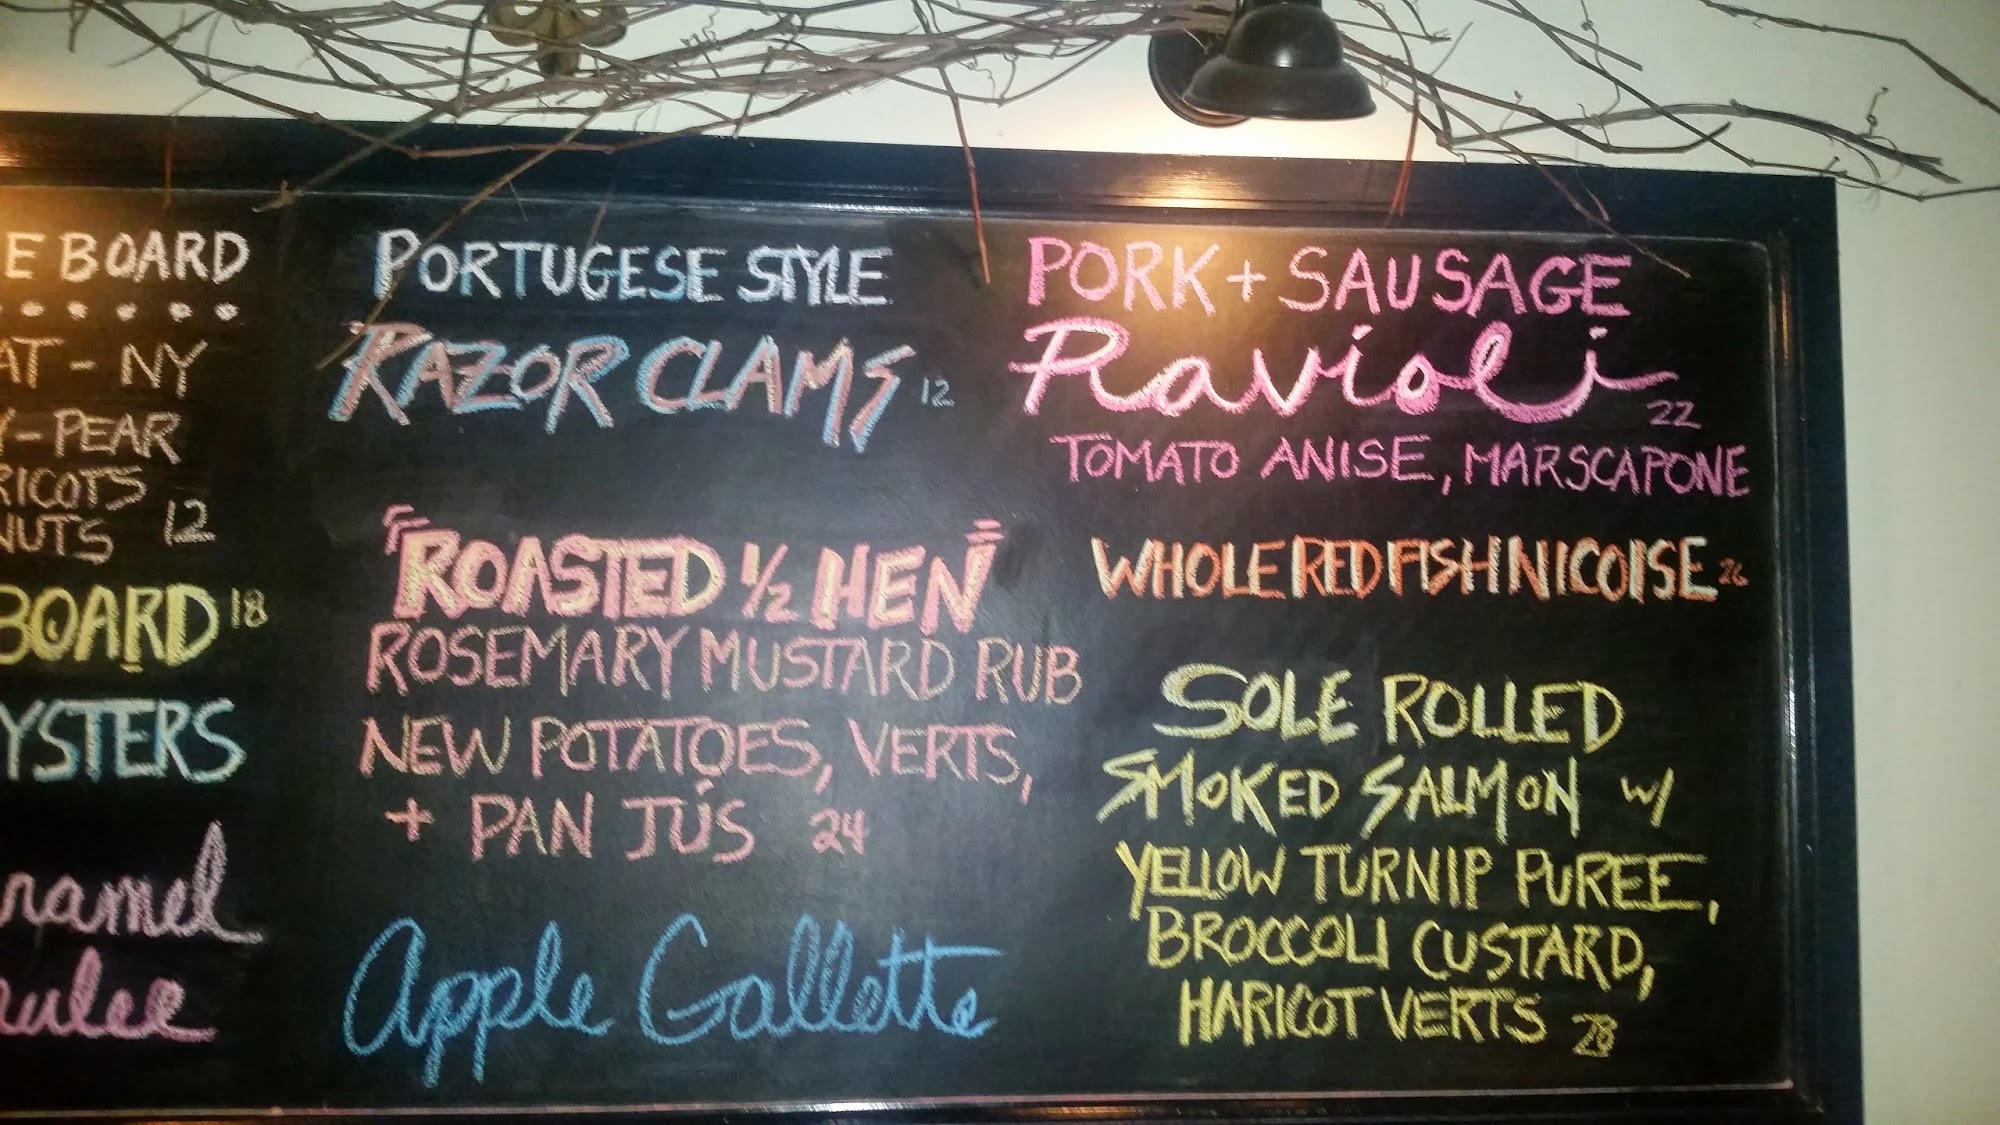 E BOARD
AT - NY
Y - PEAR
RICOTS
NUTS 12
BOARD 18
YSTERS
ramel
ulee
PORTUGESE STYLE
RAZOR CLAMS 12
"ROASTED 1/2 HEN"
ROSEMARY MUSTARD RUB
NEW POTATOES, VERTS,
+ PAN JUS 24
Apple Gallette
PORK + SAUSAGE
Ravioli 22
TOMATO ANISE, MARSCAPONE
WHOLE RED FISH NICOISE 26
SOLE ROLLED
SMOKED SALMON W/
YELLOW TURNIP PUREE,
BROCCOLI CUSTARD,
HARICOT VERTS 28